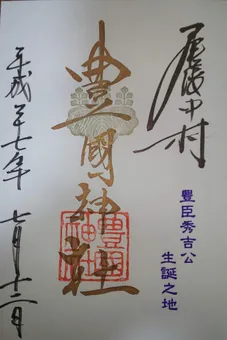 尾張中村
豊臣秀吉公
生誕之地
豊國神社
平成二十七年 七月十二日